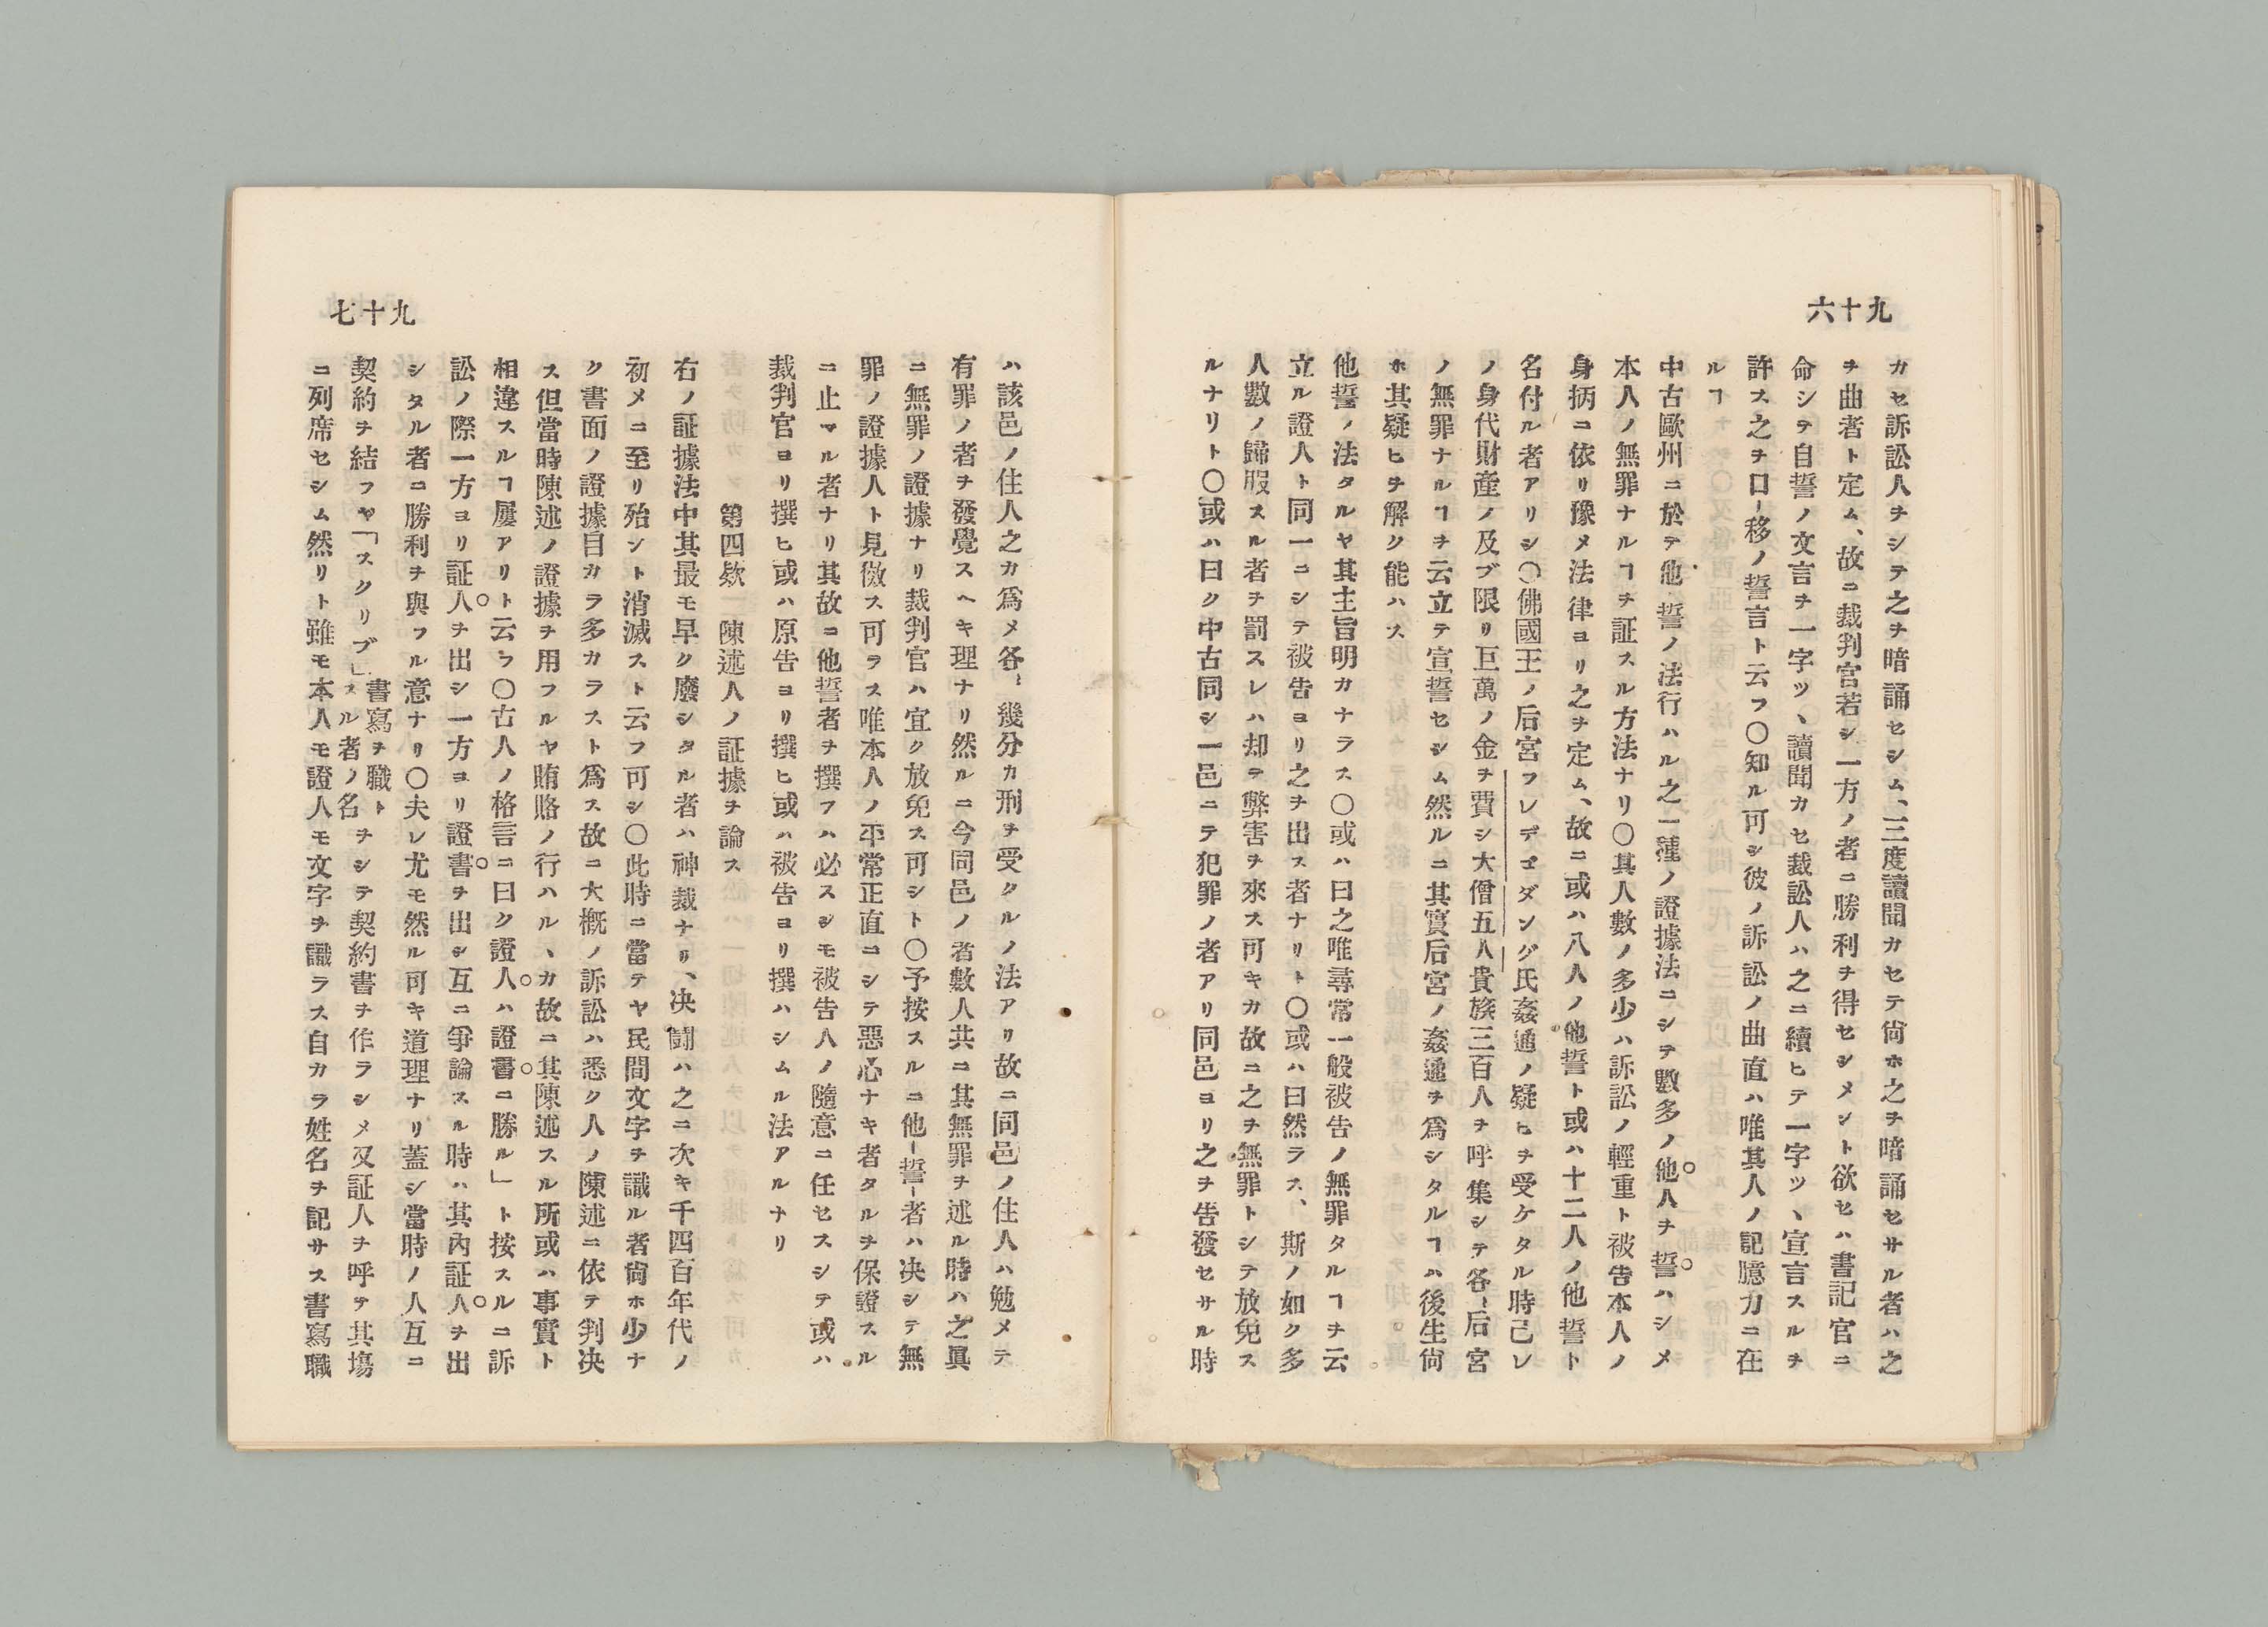 九十六
カセ訴訟人ヲシテ之ヲ暗誦セシム、三度讀聞カセテ尙ホ之ヲ暗誦セサル者ハ之
ヲ曲者ト定ム、故ニ裁判官若シ一方ノ者ニ勝利ヲ得セシメント欲セハ書記官ニ
命シテ自誓ノ文言ヲ一字ツヽ讀聞カセ裁訟人ハ之ニ續ヒテ一字ツヽ宣言スルヲ
許ス之ヲ口移ノ誓言ト云フ〇知ル可シ彼ノ訴訟ノ曲直ハ唯其人ノ記臆力ニ在
ルヿ
中古歐州ニ於テ他誓ノ法行ハル之一種ノ證據法ニシテ數多ノ他人ヲ誓ハシメ
本人ノ無罪ナルヿヲ証スル方法ナリ〇其人數ノ多少ハ訴訟ノ輕重ト被告本人ノ
身柄ニ依リ豫メ法律ヨリ之ヲ定ム、故ニ或ハ八人ノ他誓ト或ハ十二人ノ他誓ト
名付ル者アリシ〇佛國王ノ后宮フレデゴダング氏姦通ノ疑ヒヲ受ケタル時己レ
ノ身代財產ノ及ブ限リ巨萬ノ金ヲ費シ大僧五人貴族三百人ヲ呼集シテ各后宮
ノ無罪ナルヿヲ云立テ宣誓セシム然ルニ其實后宮ノ姦通ヲ爲シタルヿハ後生尙
ホ其疑ヒヲ解ク能ハス
他誓ノ法タルヤ其主旨明カナラス〇或ハ曰之唯尋常一般被告ノ無罪タルヿヲ云
立ル證人ト同一ニシテ被告ヨリ之ヲ出ス者ナリト〇或ハ曰然ラス、斯ノ如ク多
人數ノ歸服スル者ヲ罰スレハ却テ弊害ヲ來ス可キカ故ニ之ヲ無罪トシテ放免ス
ルナリト〇或ハ曰ク中古同シ一邑ニテ犯罪ノ者アリ同邑ヨリ之ヲ告發セサル時
九十七
ハ該邑ノ住人之カ爲メ各幾分カ刑ヲ受クルノ法アリ故ニ同邑ノ住人ハ勉メテ
有罪ノ者ヲ發覺スヘキ理ナリ然ルニ今同邑ノ者數人共ニ其無罪ヲ述ル時ハ之眞
ニ無罪ノ證據ナリ裁判官ハ宜ク放免ス可シト〇予按スルニ他誓者ハ決シテ無
罪ノ證據人ト見做ス可ラス唯本人ノ平常正直ニシテ惡心ナキ者タルヲ保證スル
ニ止マル者ナリ其故ニ他誓者ヲ撰フハ必スシモ被告人ノ隨意ニ任セスシテ或ハ
裁判官ヨリ撰ヒ或ハ原告ヨリ撰ヒ或ハ被告ヨリ撰ハシムル法アルナリ
第四欵　陳述人ノ証據ヲ論ス
右ノ証據法中其最モ早ク廢シタル者ハ神裁ナリ、决鬪ハ之ニ次キ千四百年代ノ
初メニ至リ殆ント消滅スト云フ可シ〇此時ニ當テヤ民間文字ヲ識ル者尙ホ少ナ
ク書面ノ證據自カラ多カラスト爲ス故ニ大概ノ訴訟ハ悉ク人ノ陳述ニ依テ判决
ス但當時陳述ノ證據ヲ用フルヤ賄賂ノ行ハルヽカ故ニ其陳述スル所或ハ事實ト
相違スルヿ屢アリト云フ〇古人ノ格言ニ曰ク證人ハ證書ニ勝ル」ト按スルニ訴
訟ノ際一方ヨリ証人ヲ出シ一方ヨリ證書ヲ出シ互ニ爭論スル時ハ其內証人ヲ出
シタル者ニ勝利ヲ與フル意ナリ〇夫レ尤モ然ル可キ道理ナリ蓋シ當時ノ人互ニ
契約ヲ結フヤ「スクリブ」書寫ヲ職トスル者ノ名ヲシテ契約書ヲ作ラシメ又証人ヲ呼テ其塲
ニ列席セシム然リト雖モ本人モ證人モ文字ヲ識ラス自カラ姓名ヲ記サス書寫職